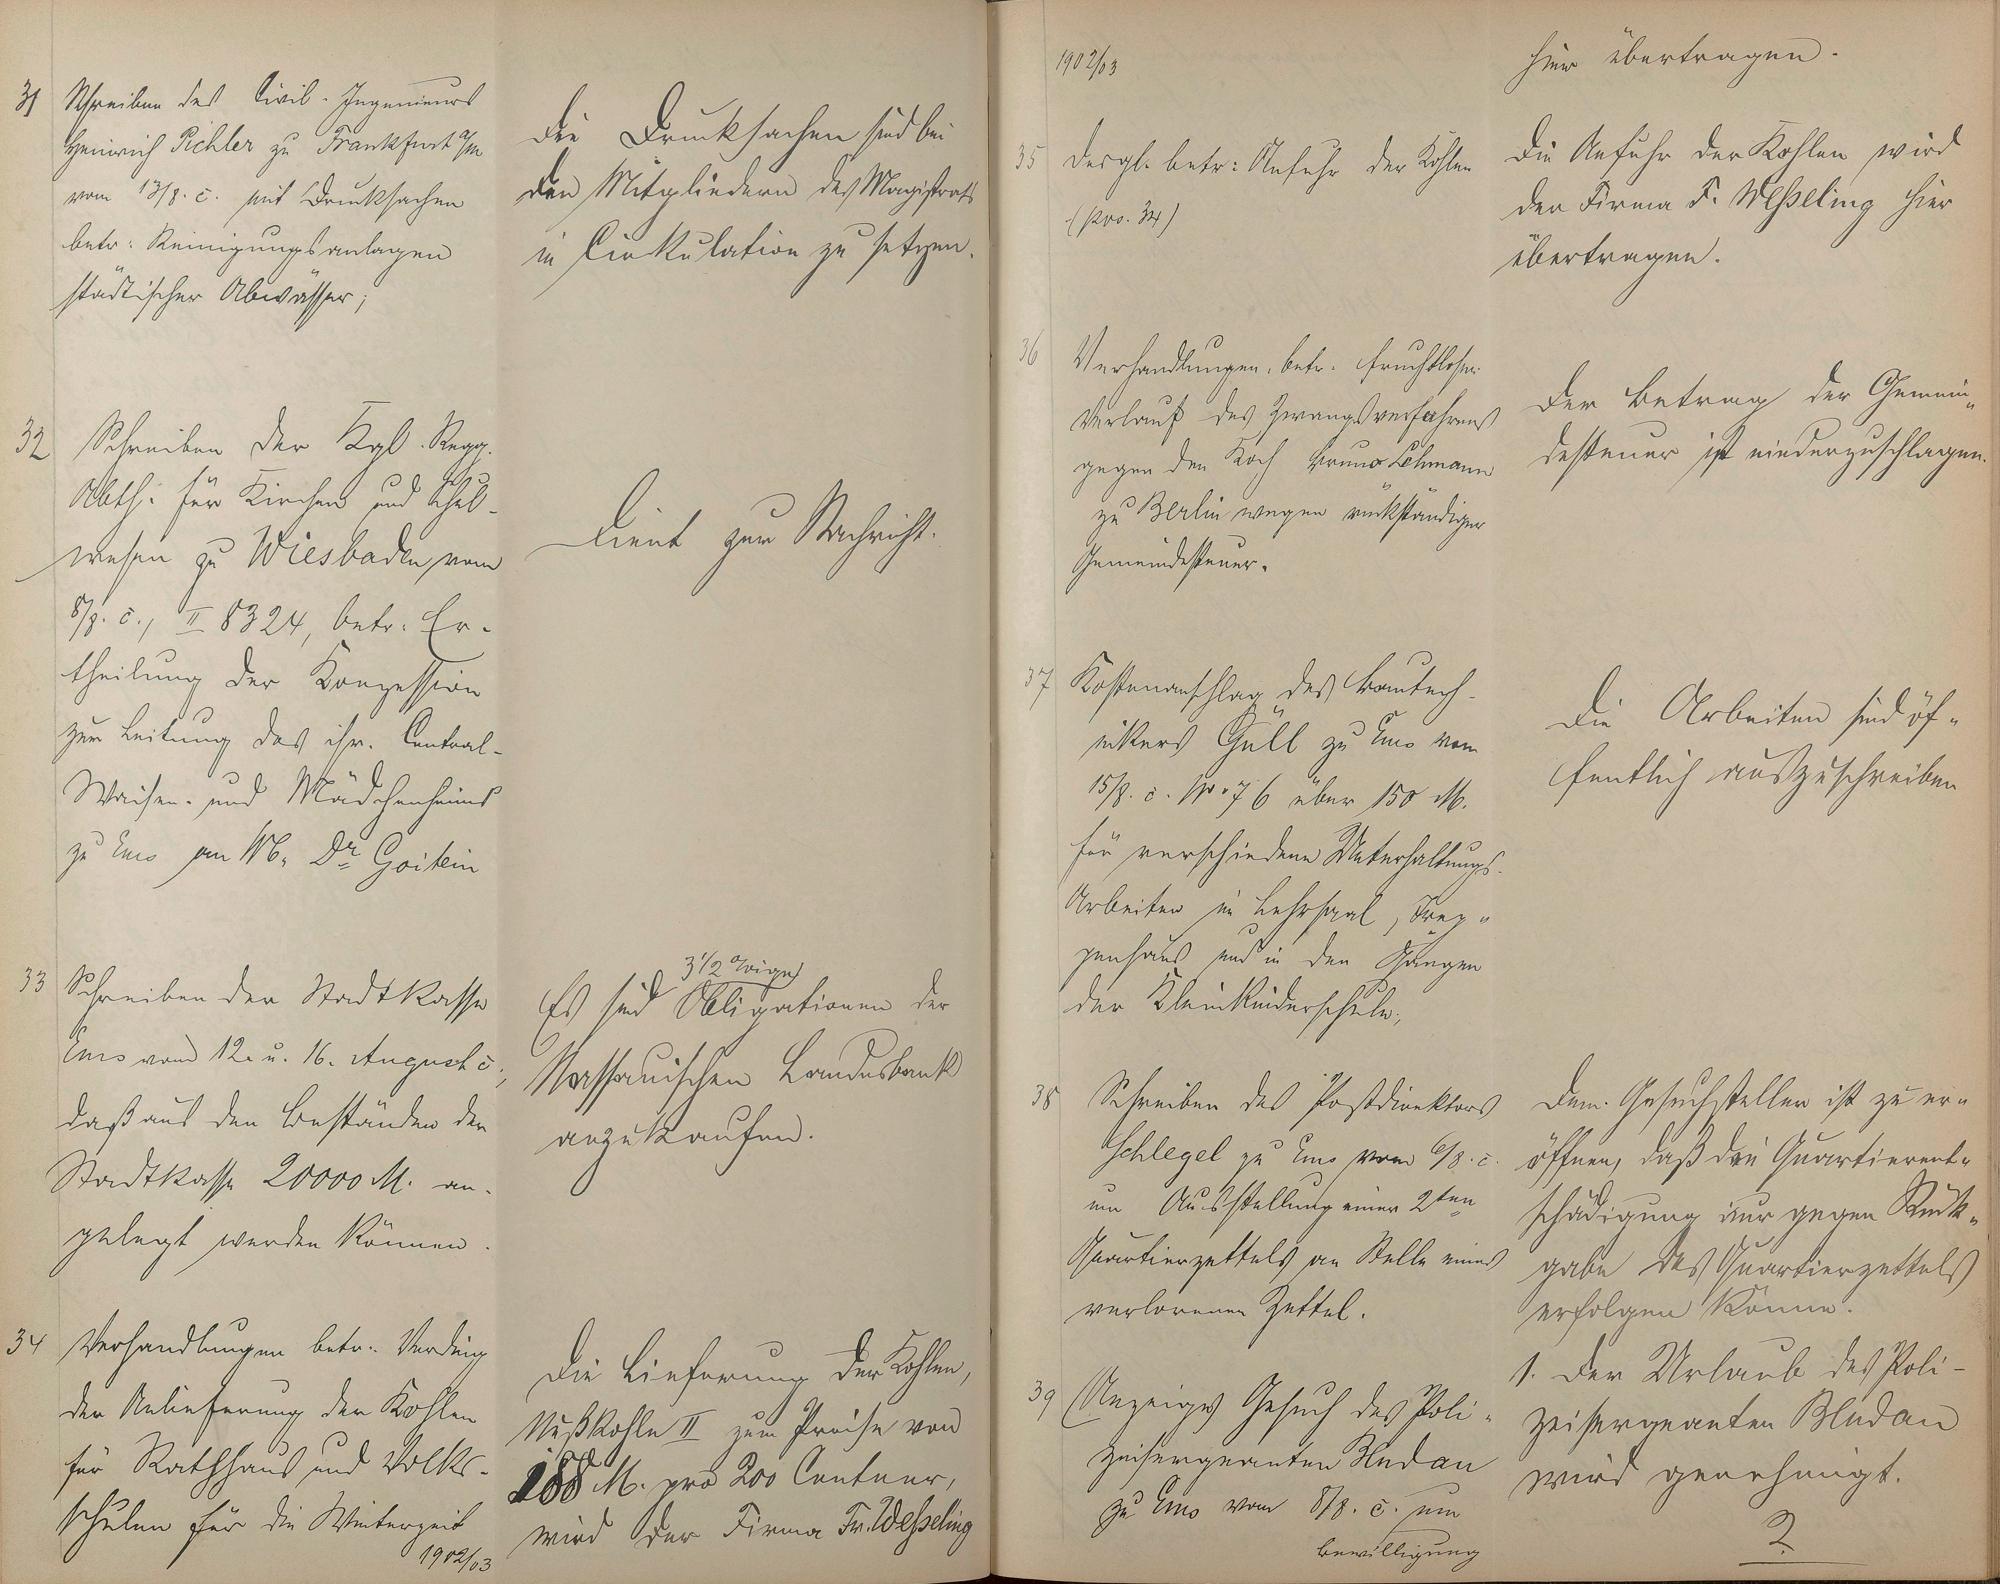 31 Schreiben des Civil-Ingenieurs
Heinrich Pichler zu Frankfurt a/m
vom 13/8. c. mit Drucksachen
betr: Reinigungsanlagen
städtischer Abwässer;
Die Drucksachen sind bei
den Mitgliedern des Magistrats
in Cirkulation zu setzen.
32 Schreiben der Kgl. Regg.
Abth. für Kirchen und Schul-
wesen zu Wiesbaden vom
8/8. c., II 8324, betr. Er-
theilung der Konzession
zur Leitung des isr. Central-
Waisen- und Mädchenheims
zu Ems an Dr Goitein
Dient zur Nachricht.
33 Schreiben der Stadtkasse
Ems vom 12. u. 16. August c.,
daß aus den Beständen der
Stadtkasse 20000 M. an-
gelegt werden können.
3 1/2 %ige
Es sind Obligationen der
Nassauischen Landesbank
anzukaufen.
34 Verhandlungen betr. Verding
der Anlieferung der Kohlen
für Rathhaus und Volks-
schulen für die Winterzeit
1902/03
Die Lieferung der Kohlen,
Nußkohle II zum Preise von
188 M. pro 200 Centner,
wird der Firma Fr. Weßeling
1902/03
hier übertragen.
35 Desgl. betr: Anfuhr der Kohlen
(pro. 34)
Die Anfuhr der Kohlen wird
der Firma F. Weßeling hier
übertragen.
36 Verhandlungen, betr. fruchtlosen
Verlauf des Zwangsverfahrens
gegen den Koch Bruno Lehmann
zu Berlin wegen rückständiger
Gemeindesteuer.
Der Betrag der Gemein-
desteuer ist niederzuschlagen.
37 Kostenanschlag des Bautech-
nikers Güll zu Ems vom
15/8. c. No. 76 über 150 M.
für verschiedene Unterhaltungs-
Arbeiten in Lehrsaal, Trep-
penhaus und in den Gängen
der Kleinkinderschule;
Die Arbeiten sind öf-
fentlich auszuschreiben
38 Schreiben des Postdirektors
Schlegel zu Ems vom 6/8. c.
um Ausstellung eines 2ten
Quartierzettels an Stelle eines
verlorenen Zettel.
Dem Gesuchsteller ist zu er-
öffnen, daß die Quartierent-
schädigung nur gegen Rück-
gabe des Quartierzettels
erfolgen könne.
39 (Anzeige) Gesuch des Poli-
zeisergeanten Bludau
zu Ems vom 8/8. c. um
Bewilligung
1. Der Urlaub des Poli-
zeisergeanten Bludau
wird genehmigt.
2.